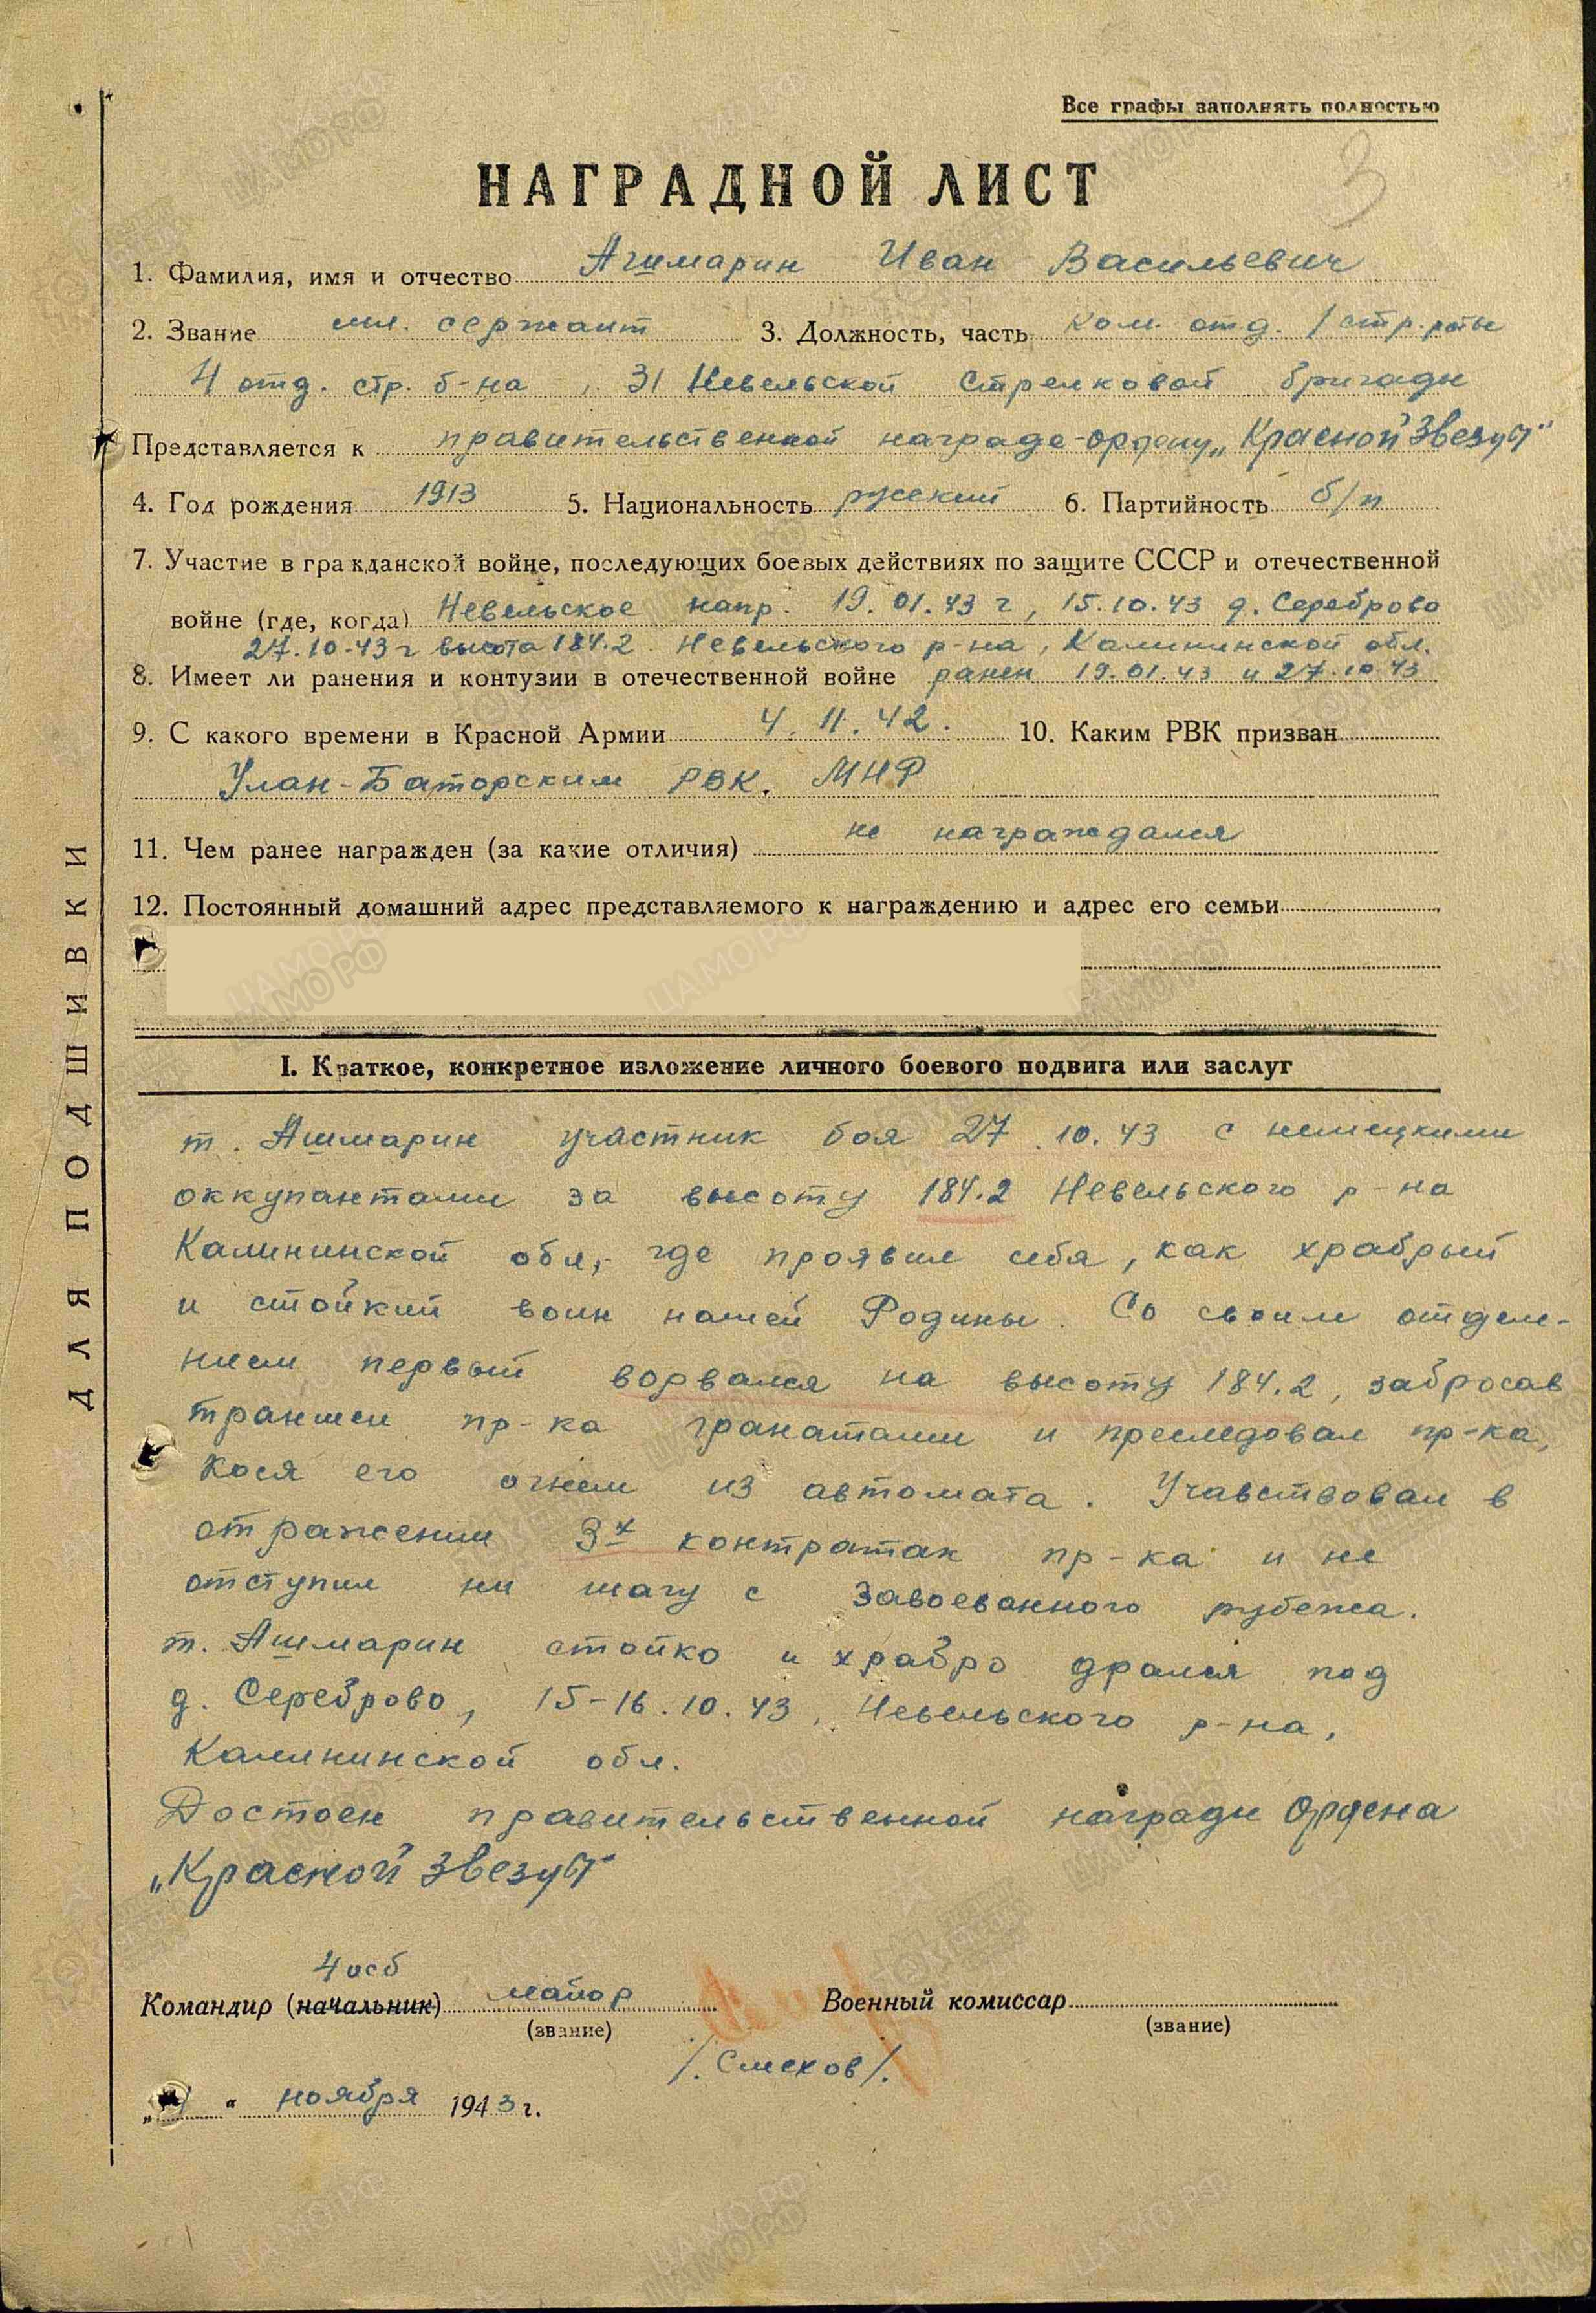 Все графы заполнять полностью
3
НАГРАДНОЙ ЛИСТ
1. Фамилия, имя и отчество Ашмарин Иван Васильевич
2. Звание мл. сержант 3. Должность, часть Ком. отд. 1 стр. роты
4 отд. стр. б-на, 31 Невельской Стрелковой бригады
Представляется к правительственной награде - ордену „Красной Звезды"
4. Год рождения 1913 5. Национальность русский 6. Партийность б/п
7. Участие в гражданской войне, последующих боевых действиях по защите СССР и отечественной
войне (где, когда) Невельское напр. 19.01.43 г, 15.10.43 д. Сереброво
27.10.43 г высота 184.2 Невельского р-на, Калининской обл.
8. Имеет ли ранения и контузии в отечественной войне ранен 19.01.43 и 27.10.43
9. С какого времени в Красной Армии 4.11.42. 10. Каким РВК призван
Улан-Баторским РВК. МНР
11. Чем ранее награжден (за какие отличия) не награждался
12. Постоянный домашний адрес представляемого к награждению и адрес его семьи
I. Краткое, конкретное изложение личного боевого подвига или заслуг
т. Ашмарин участник боя 27.10.43 с немецкими
оккупантами за высоту 184.2 Невельского р-на
Калининской обл, где проявил себя, как храбрый
и стойкий воин нашей Родины. Со своим отделе-
нием первый ворвался на высоту 184.2, забросав
траншеи пр-ка гранатами и преследовал пр-ка,
кося его огнем из автомата. Учавствовал в
отражении 3х контратак пр-ка и не
отступил ни шагу с завоеванного рубежа.
т. Ашмарин стойко и храбро дрался под
д. Сереброво, 15-16.10.43, Невельского р-на,
Калининской обл.
Достоен правительственной награды Ордена
„Красной Звезды"
4 осб
Командир (начальник) майор Военный комиссар
(звание) (звание)
/. Смехов /.
" ноября 1943 г.
ДЛЯ ПОДШИВКИ
ЦАМО РФ